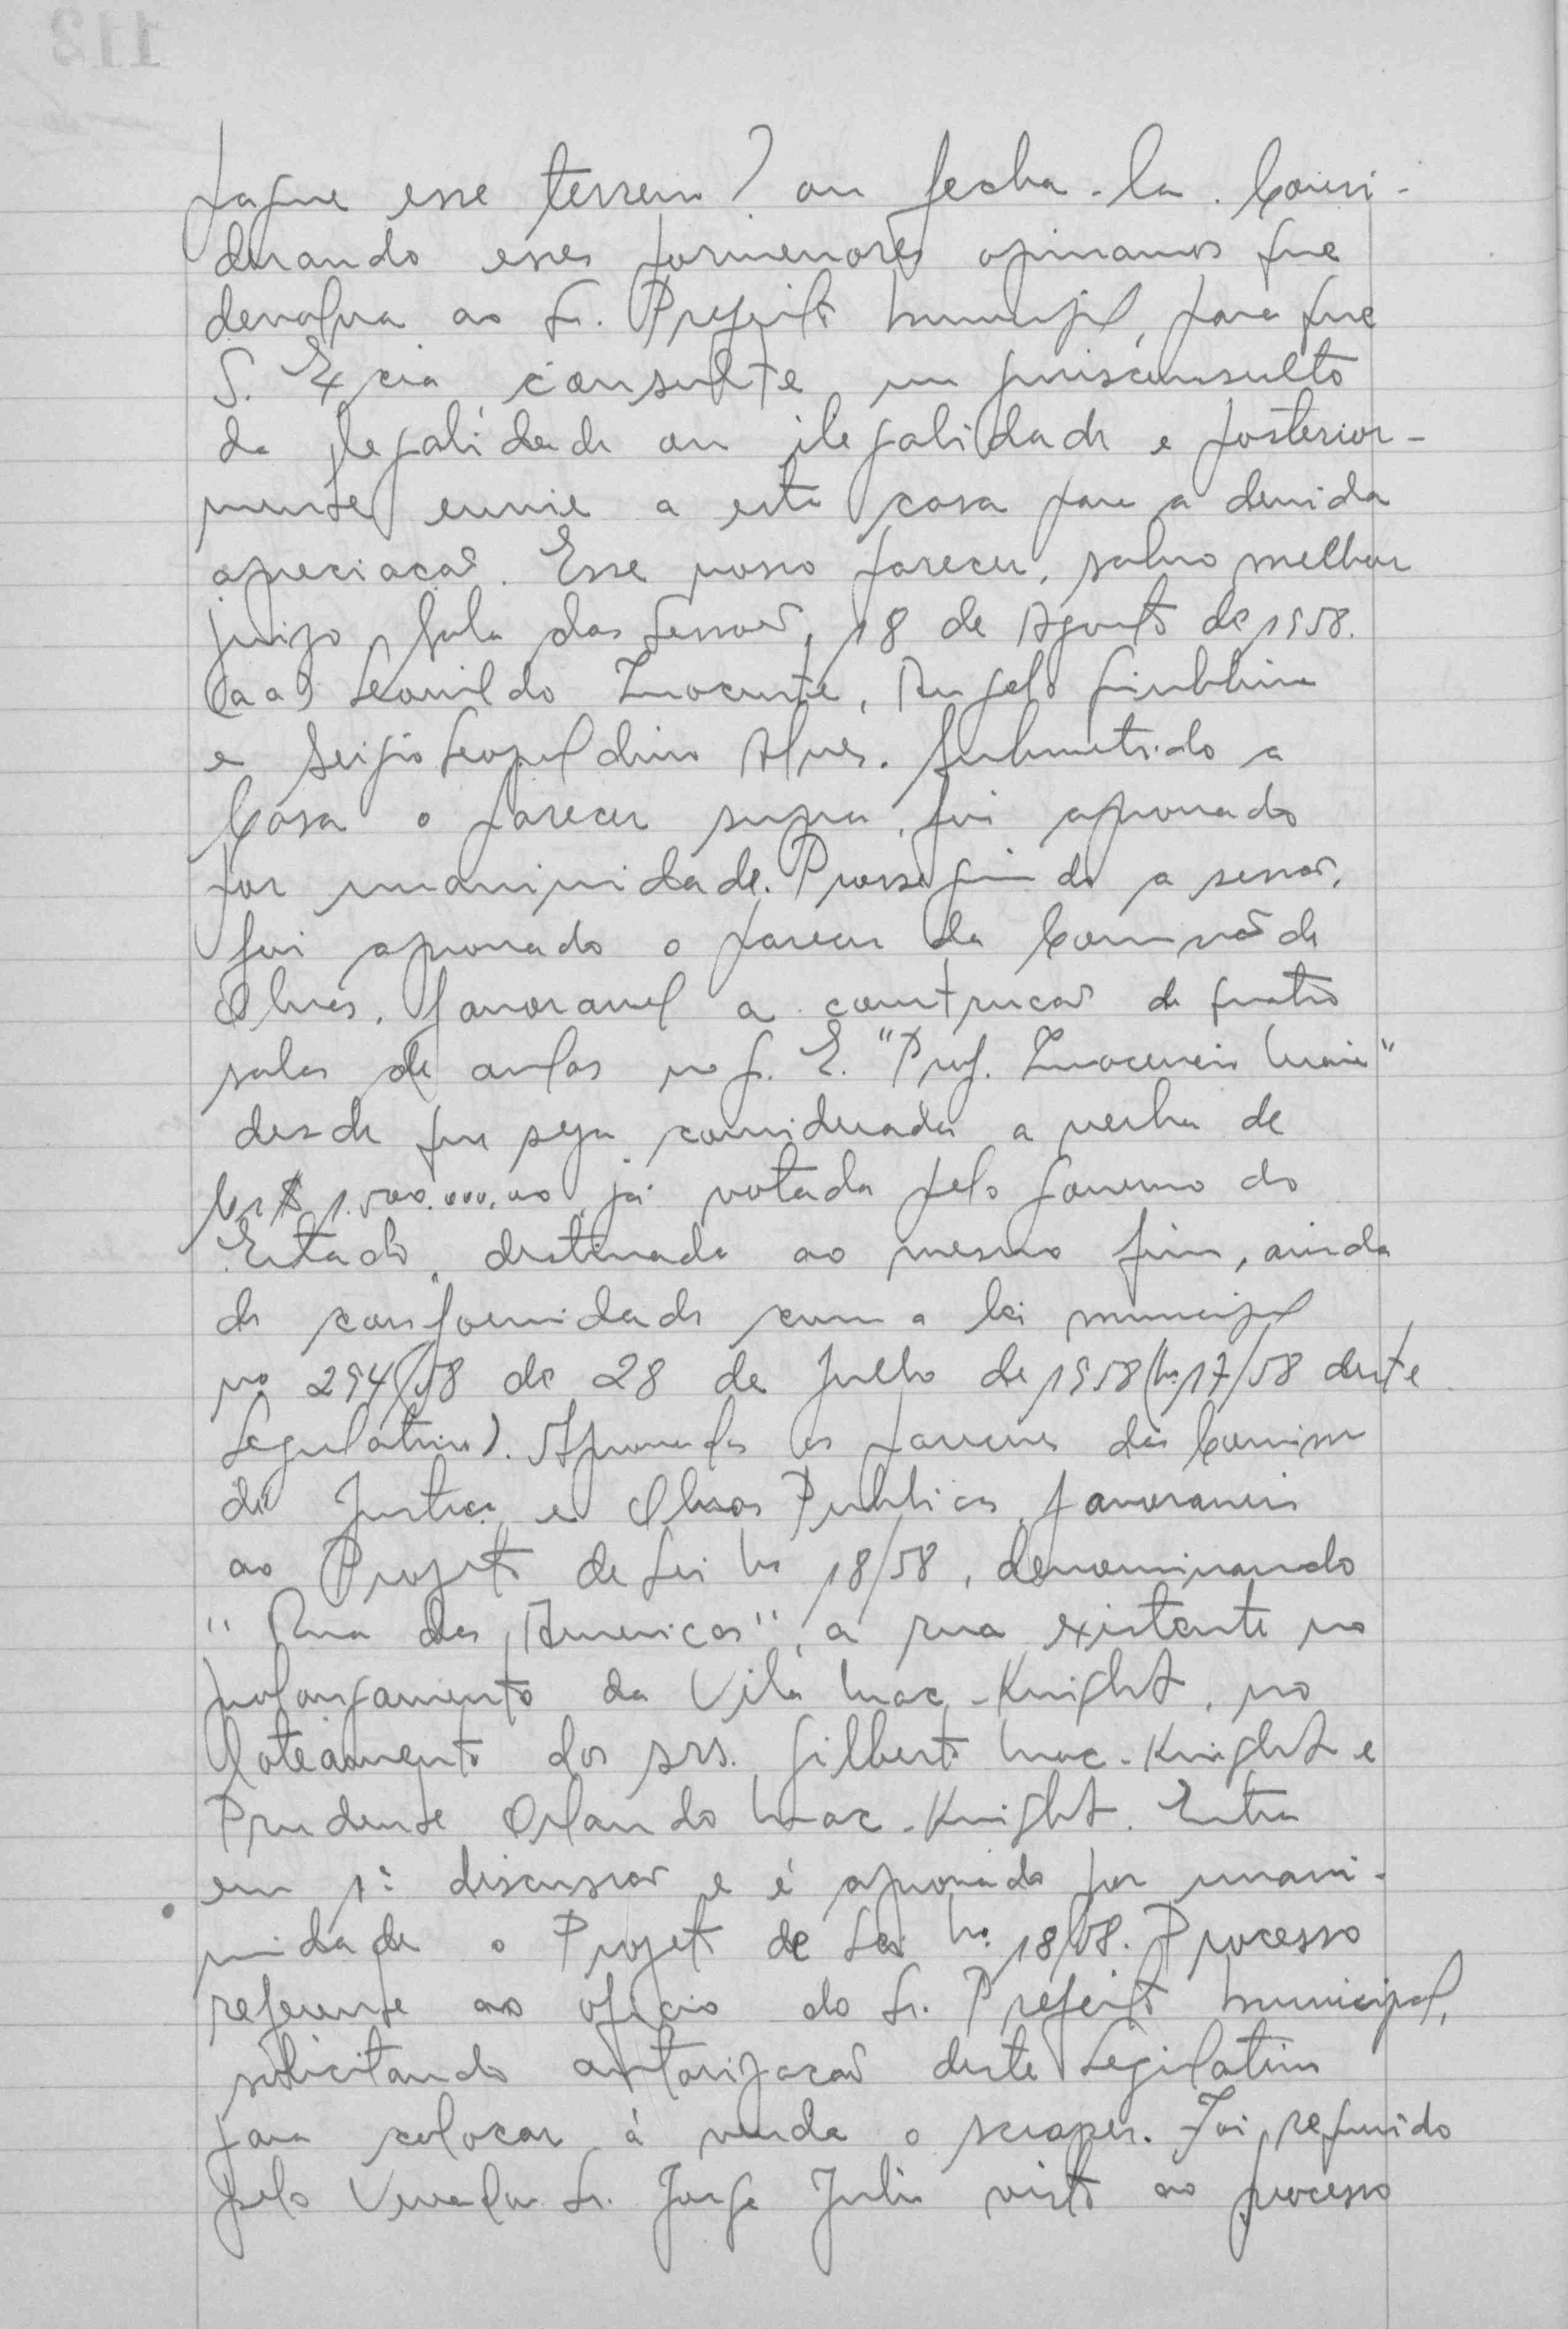 pague esse terreno? ou fecha-la. Consi-
derando esses pormenores opinamos que
devolva ao Sr. Prefeito Municipal, para que
S. Excia consulte um jurisconsulto
da legalidade ou ilegalidade e posterior-
mente envie a esta casa para a devida
apreciação. Esse nosso parecer, salvo melhor
juizo, Sala das Sessões, 18 de Agosto de 1958.
(aa) Leonildo Inocente, Angelo
e Sergio Leopoldino Alves. Submetido a
Casa o parecer supra, foi aprovado
por unanimidade. Prosseguindo a sessão,
foi aprovado o parecer da Comissão de
Obras, favoravel a construcão de quatro
salas de aulas no G. E. "Prof. Inocencio Maia"
desde que seja considerada a verba de
Cr$ 1.500.000,00 já votada pelo Governo do
Estado, destinada ao mesmo fim, ainda
de conformidade com a lei municipal
nº 294/58 de 28 de Julho de 1958 (Nº 17/58 deste
Legislativo). Aprovados os pareceres das Comissões
de Justiça e Obras Publicas, favoraveis
ao Projeto de Lei Nº 18/58, denominando
"Rua das Americas", a rua existente no
prolongamento da Vila Mac-Knight, no
loteamento dos srs. Gilberto Mac-Knight e
Prudente Orlando Mac-Knight. Entra
em 1ª discussão e é aprovado por unani-
midade o Projeto de Lei Nº 18/58. Processo
referente ao oficio do Sr. Prefeito Municipal,
solicitando autorização deste Legislativo
para colocar á venda o scraper. Foi requerido
pelo Vereador Sr. Jorge Julio visto ao processo
112